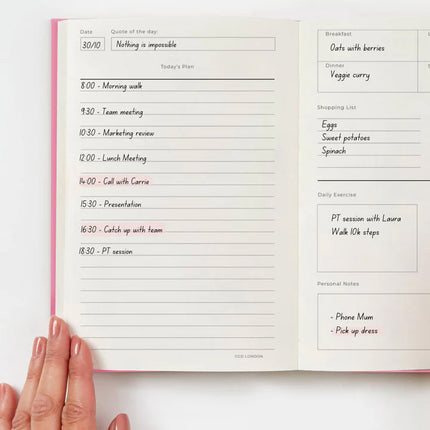 Date
Quote of the day:
30/10
Nothing is impossible
Today's Plan
8:00 - Morning walk
9:30 - Team meeting
10:30 - Marketing review
12:00 - Lunch Meeting
14:00 - Call with Carrie
15:30 - Presentation
16:30 - Catch up with team
18:30 - PT session
CGD LONDON
Breakfast
Oats with berries
Dinner
Veggie curry
Shopping List
Eggs
Sweet potatoes
Spinach
Daily Exercise
PT session with Laura
Walk 10k steps
Personal Notes
- Phone Mum
- Pick up dress